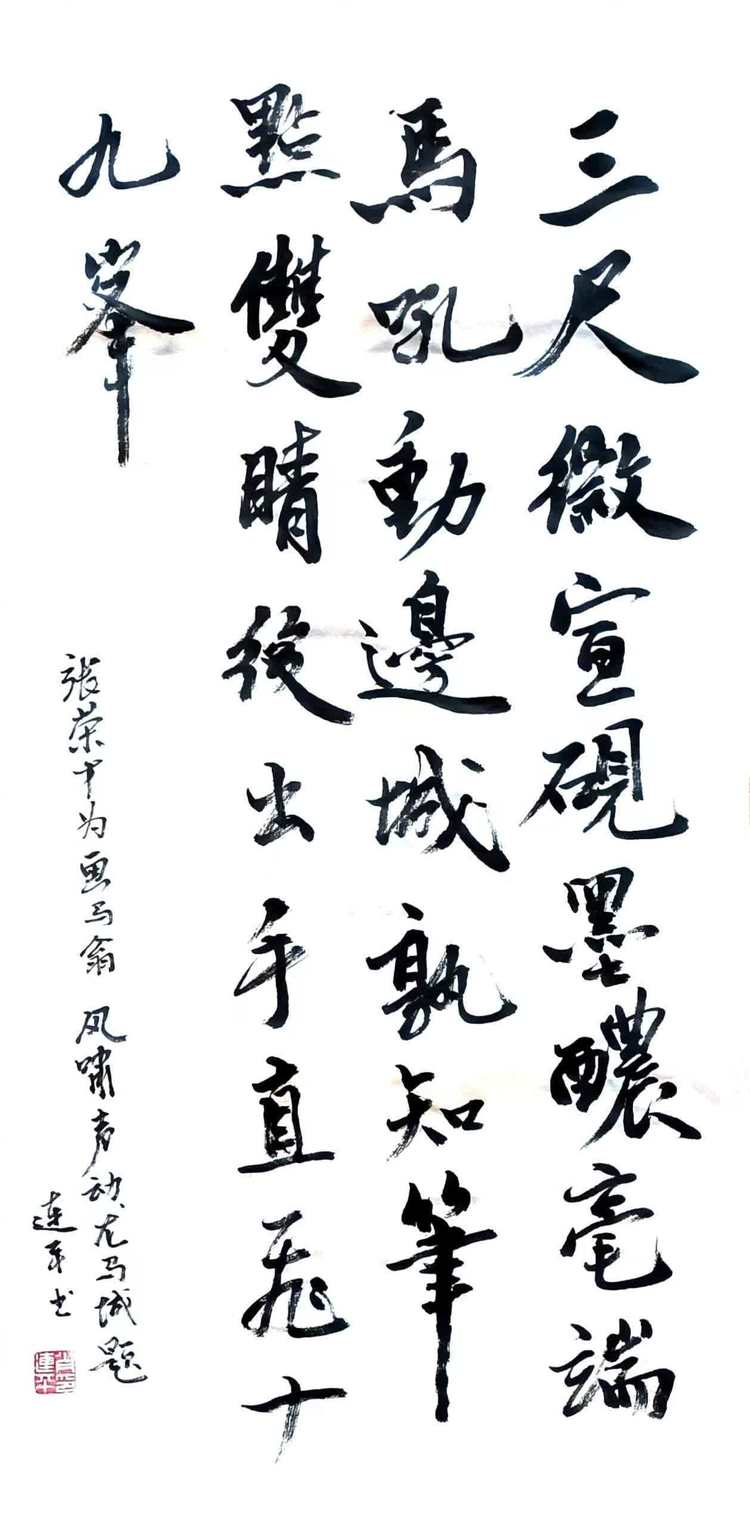 三尺徽宣硯墨醲毫端
馬吼動邊城孰知筆
點雙睛後出手直飛十
九峯
张荣才为画马翁 风啸声动龙马城题
连平书